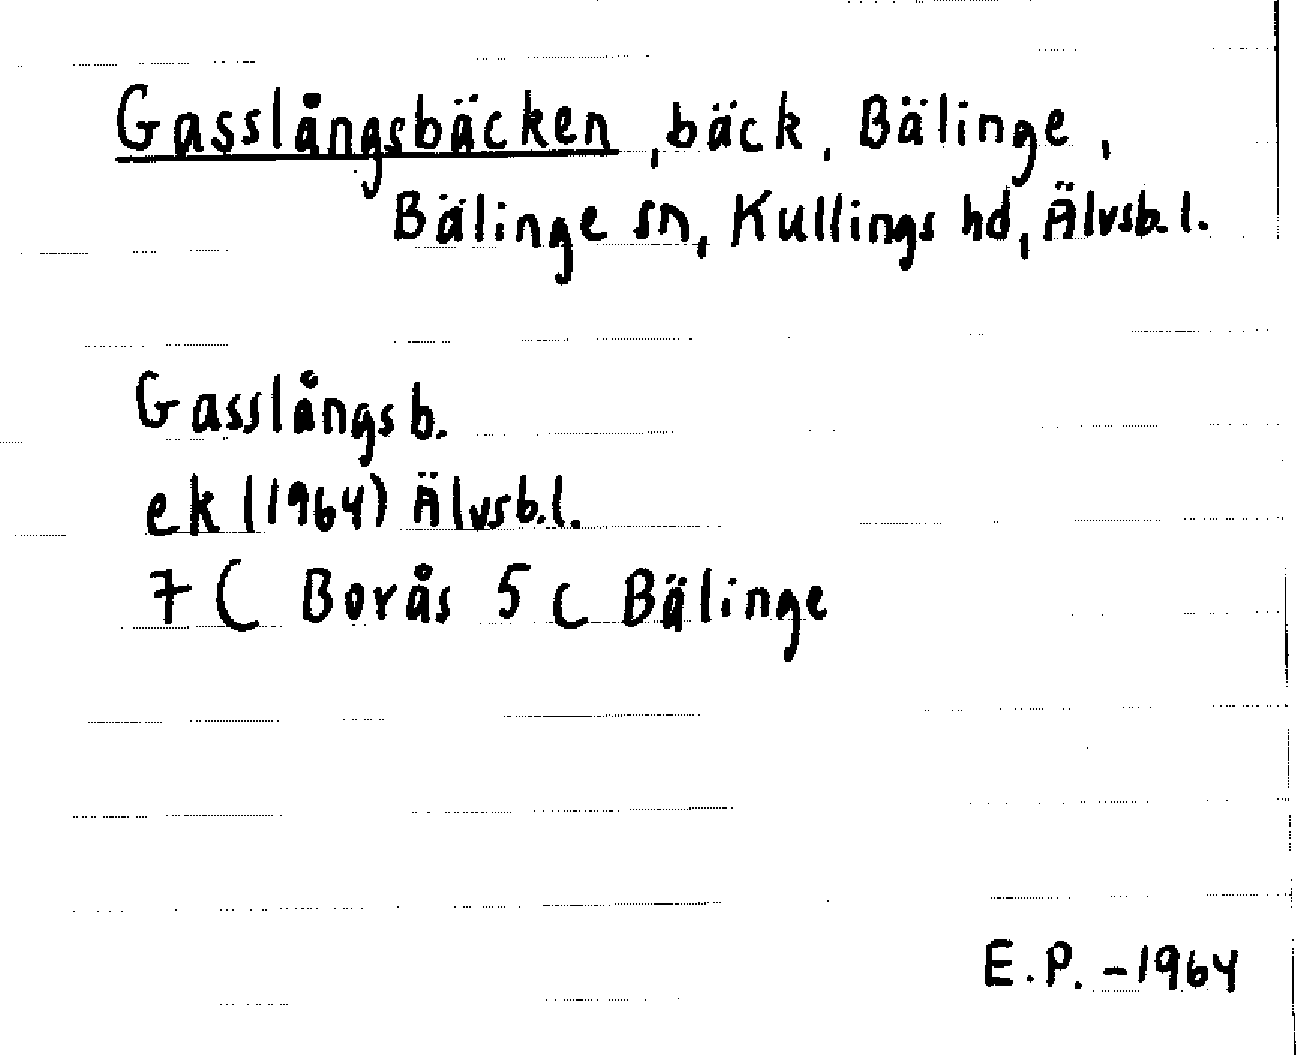 Gasslångsbäcken, bäck, Bälinge,
Bälinge sn, Kullings hd, Älvsb.l.
Gasslångsb.
ek (1964) Älvsb.l.
7C Borås 5c Bälinge
E.P. -1964